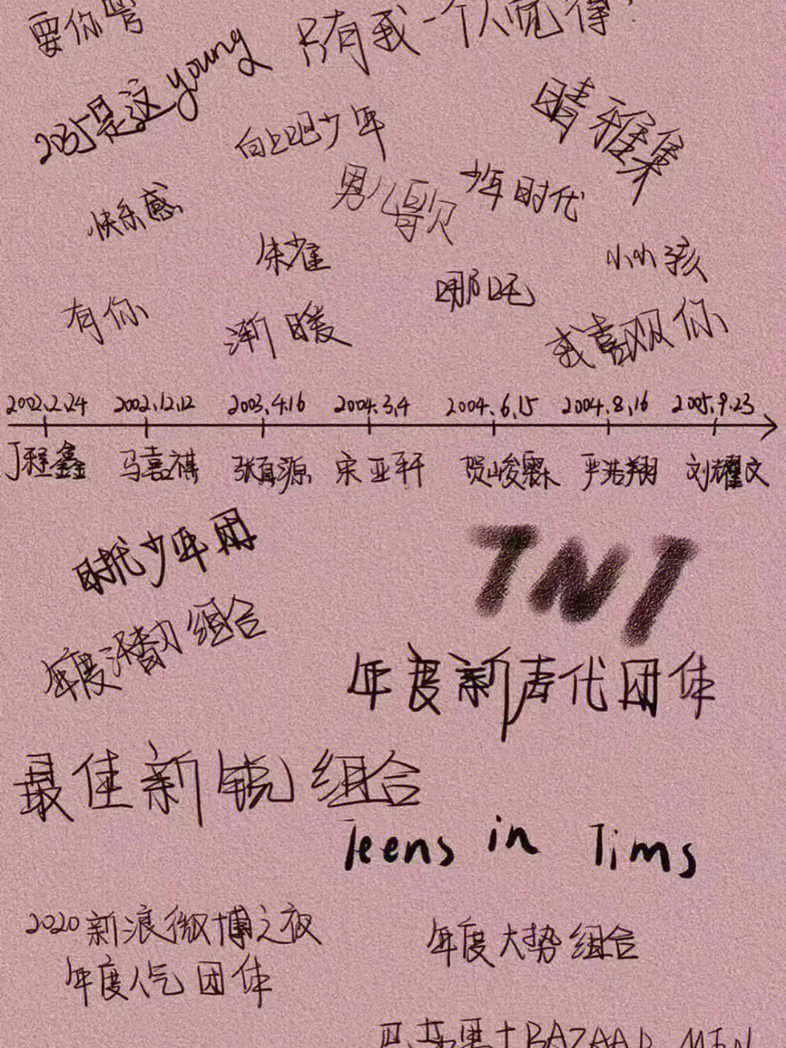 要你管
只有我一个人觉得
235是这young
向上吧少年
晴雅集
男儿歌
少年时代
快乐感
朱雀
小小孩
哪吒
有你
渐暖
我喜欢你
2002.2.24 2002.12.12 2003.4.16 2004.3.4 2004.6.15 2004.8.16 2005.9.23
丁程鑫 马嘉祺 张真源 宋亚轩 贺峻霖 严浩翔 刘耀文
时代少年团
TNT
年度潜力组合
年度新声代团体
最佳新锐组合
Teens in Tims
2020新浪微博之夜
年度人气团体
年度大势组合
芭莎男士BAZAAR MEN